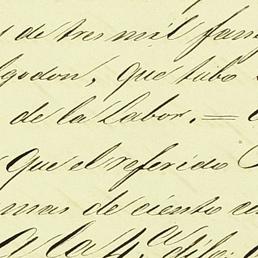 de tres mil fam
lgodon, que tubo
de la Labor. =
que el referido
mas de ciento
la 4.ª